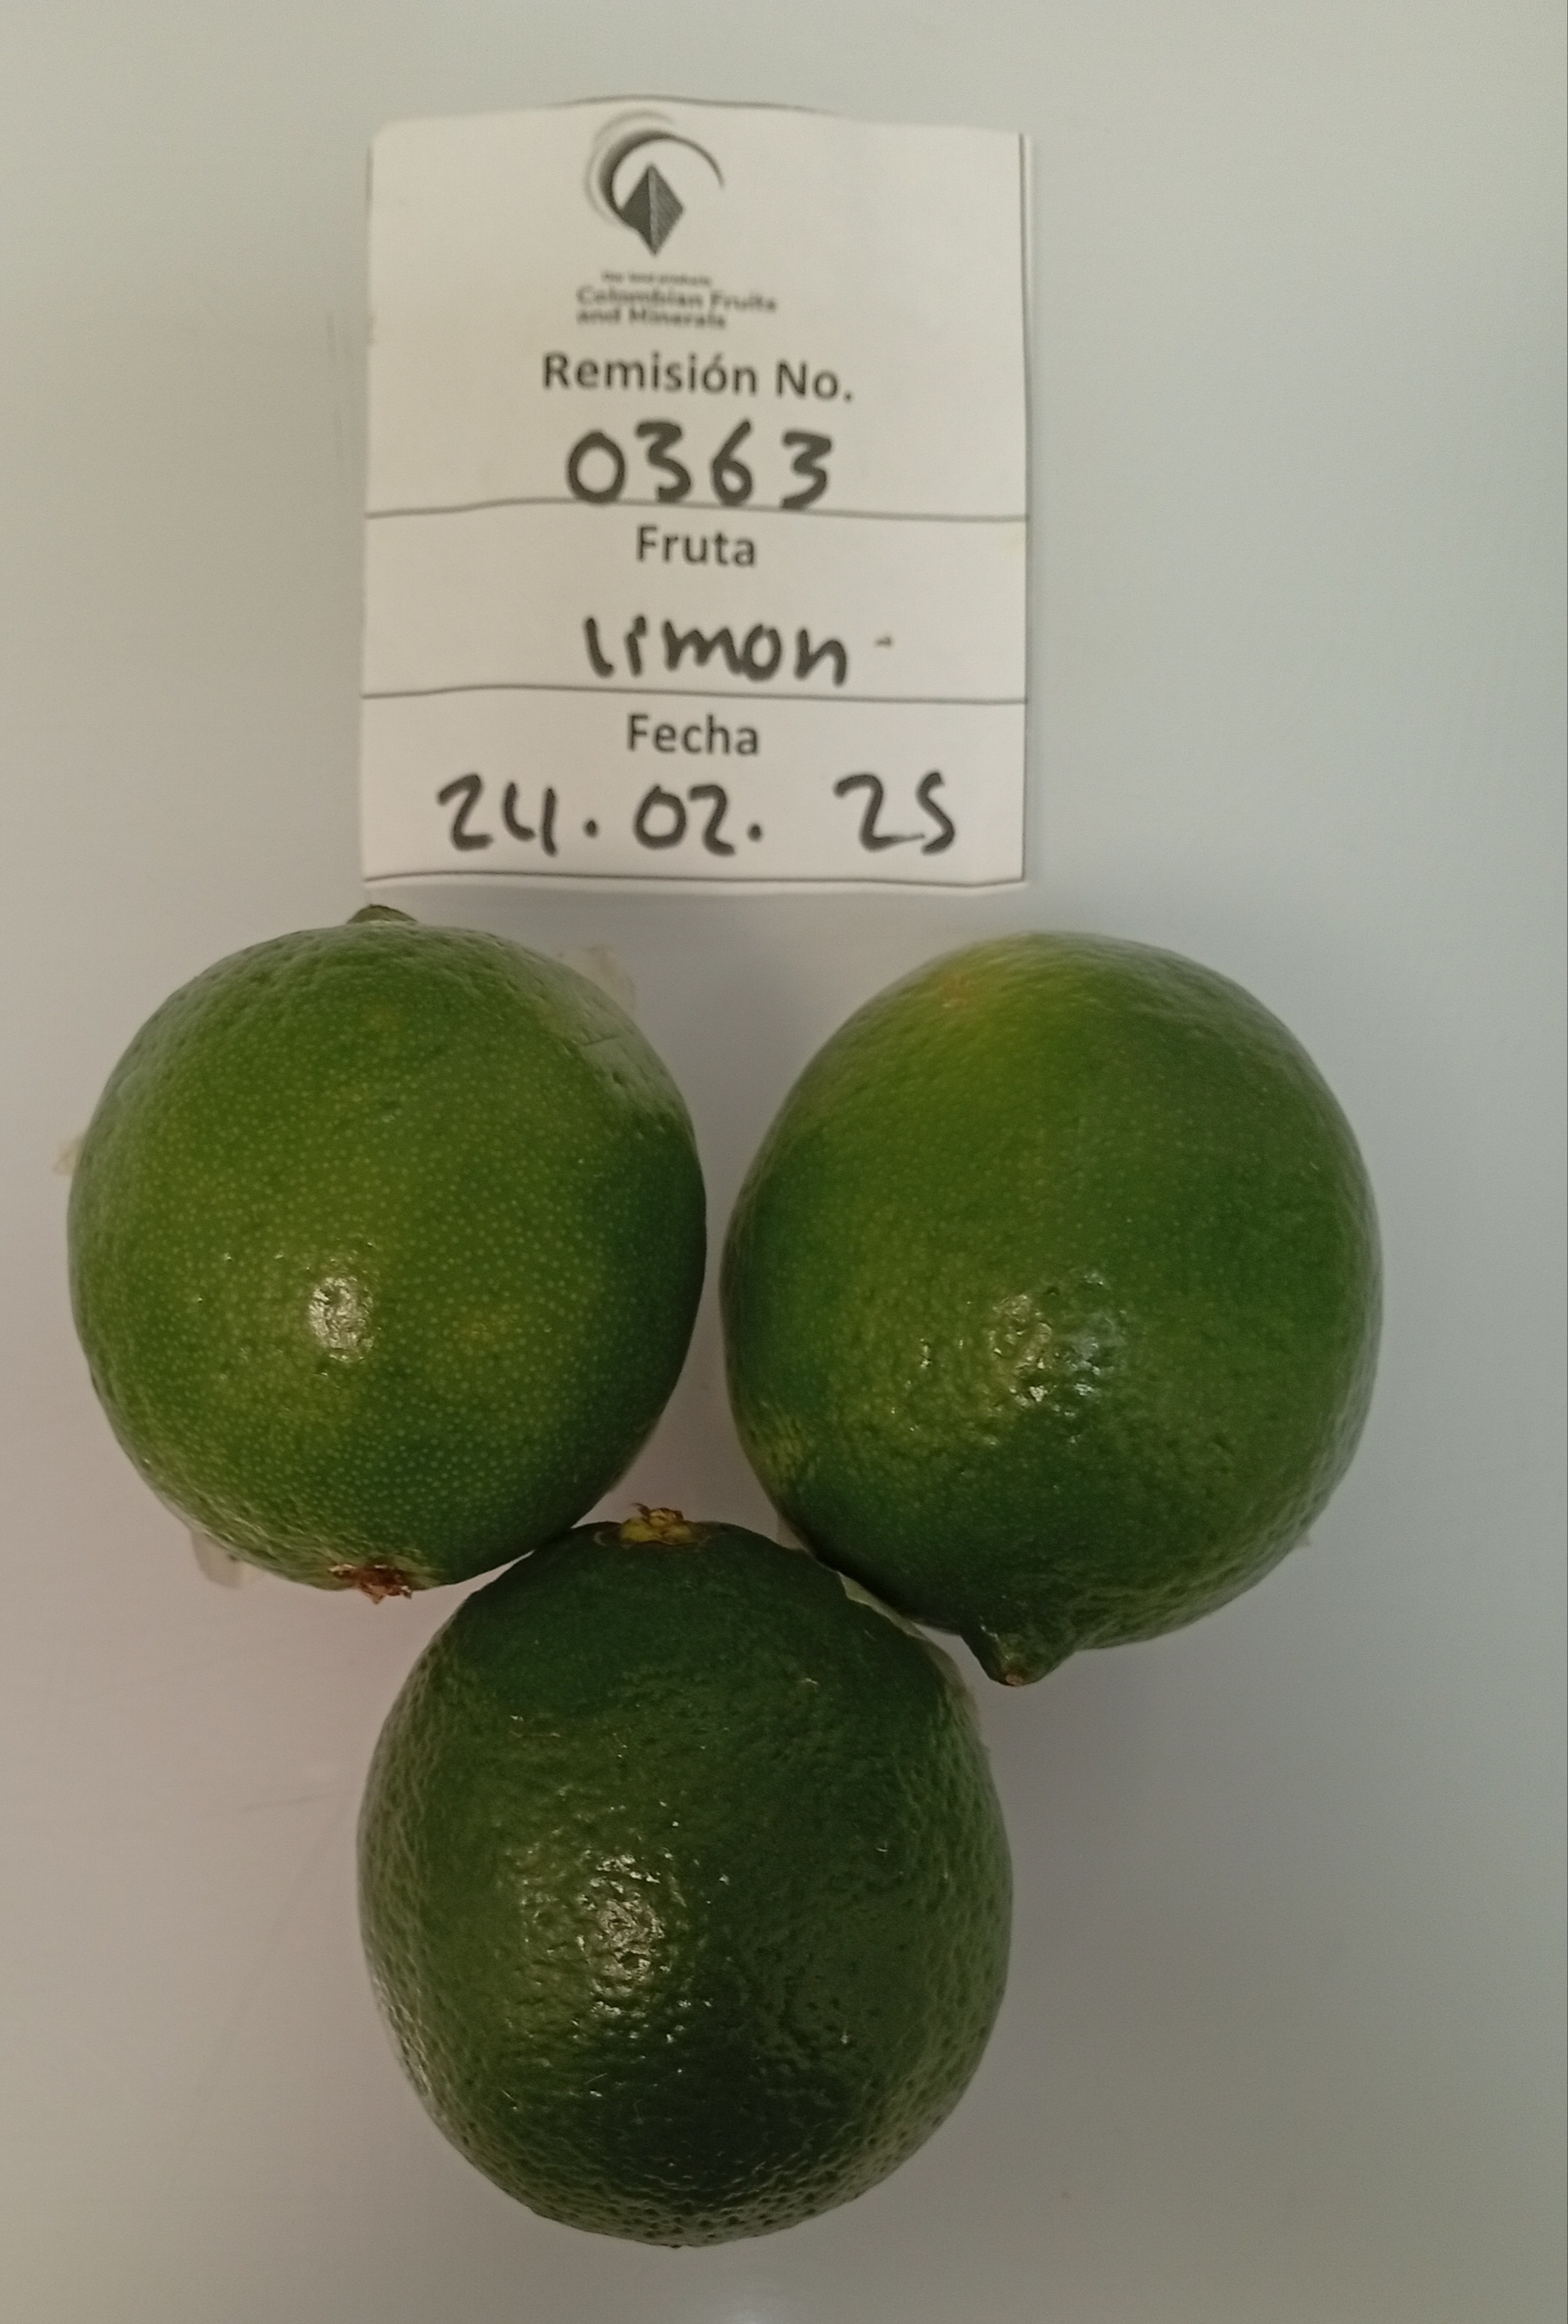 Colombian Fruits
and Minerals
Remisión No.
0363
Fruta
limon
Fecha
24.02. 25